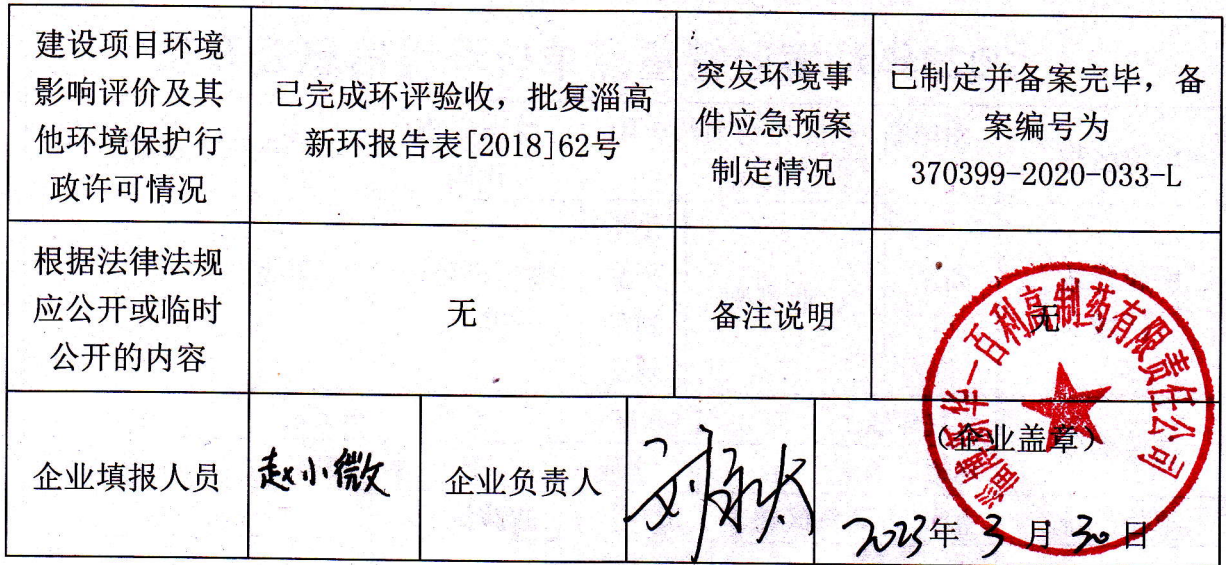 建设项目环境
影响评价及其
他环境保护行
政许可情况
已完成环评验收，批复淄高
新环报告表[2018]62号
突发环境事
件应急预案
制定情况
已制定并备案完毕，备
案编号为
370399-2020-033-L
根据法律法规
应公开或临时
公开的内容
无
备注说明
无
企业填报人员
赵小微
企业负责人
（企业盖章）
2023年3月30日
淄博新华一百利高制药有限责任公司